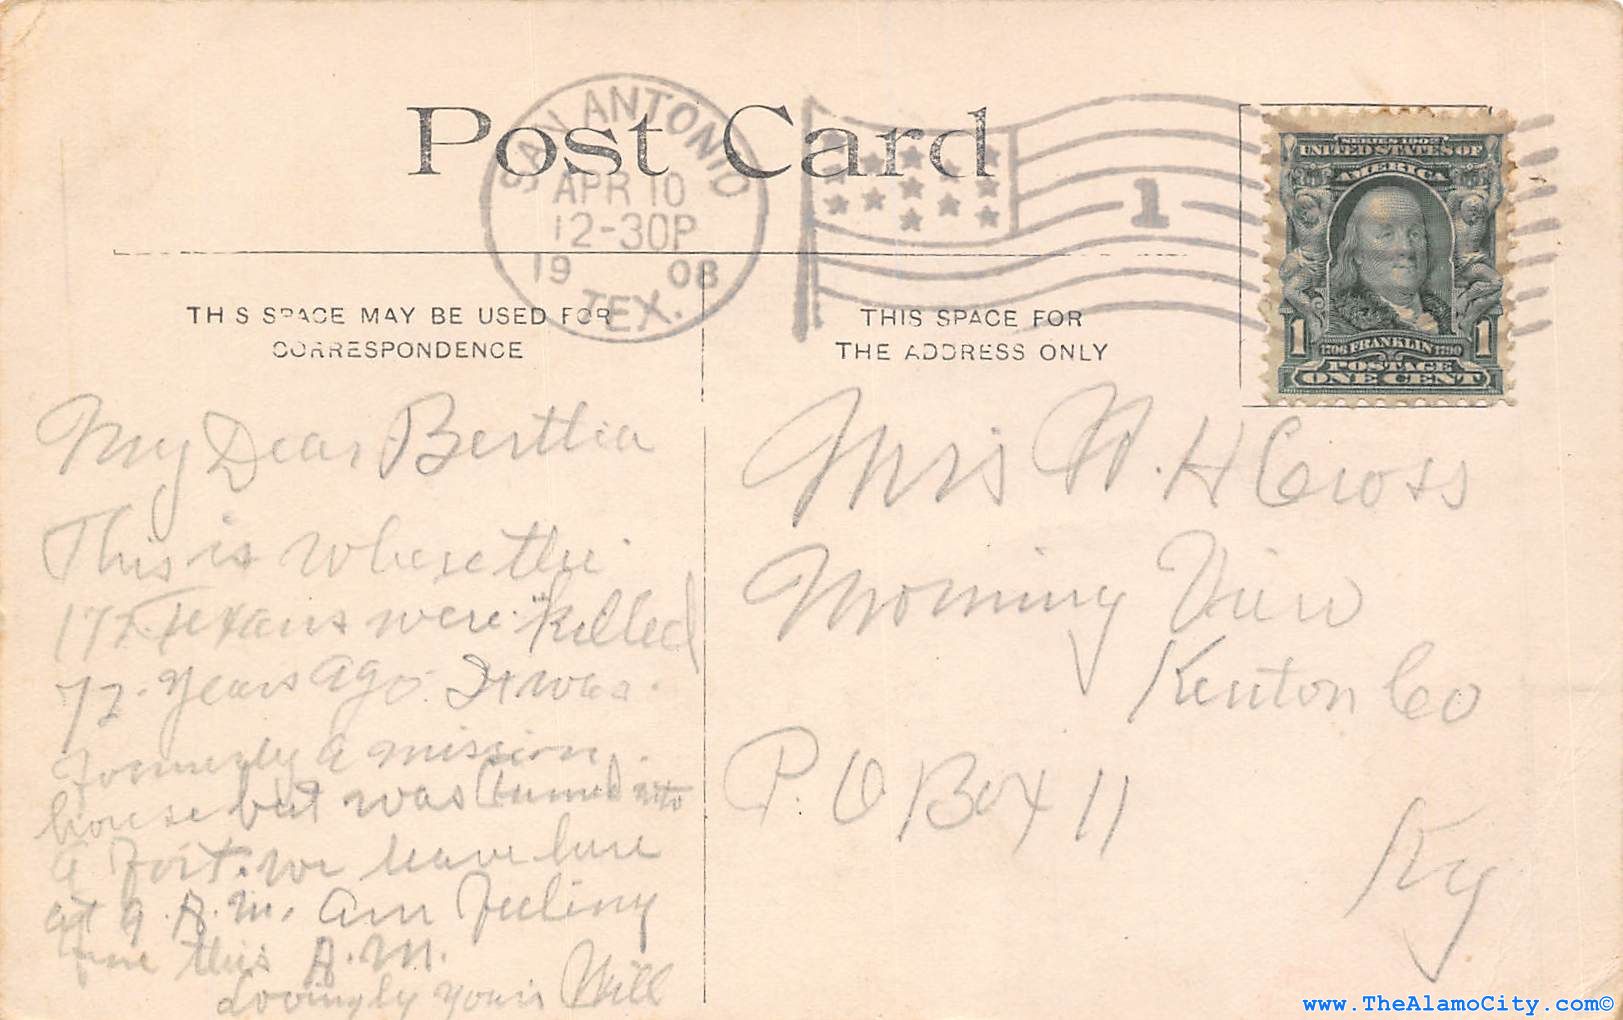 Post Card
SAN ANTONIO
APR 10
12-30P
19 08
TEX.
1
SERIES 1902
UNITED STATES OF
AMERICA
1 1
1706 FRANKLIN 1790
POSTAGE
ONE CENT
THIS SPACE MAY BE USED FOR
CORRESPONDENCE
THIS SPACE FOR
THE ADDRESS ONLY
My Dear Bertha
This is where the
Texans were "killed
72 years ago. It was
formerly a mission
house but was turned into
a Fort. we leave here
at 9 A.M. am Feeling
fine this A.M.
Lovingly yours Will
Mrs W. H Cross
Morning View
Kenton Co
P. O Box 11
Ky
www.TheAlamoCity.com©